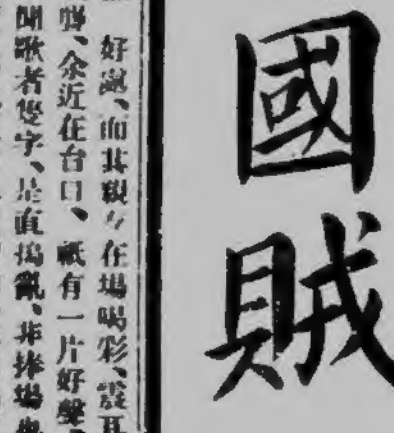 國賊
好劇、而其親友在場喝彩、震耳
、余近在台口、祇有一片好聲、
聞歌者幾字、是直搗亂、非捧場也